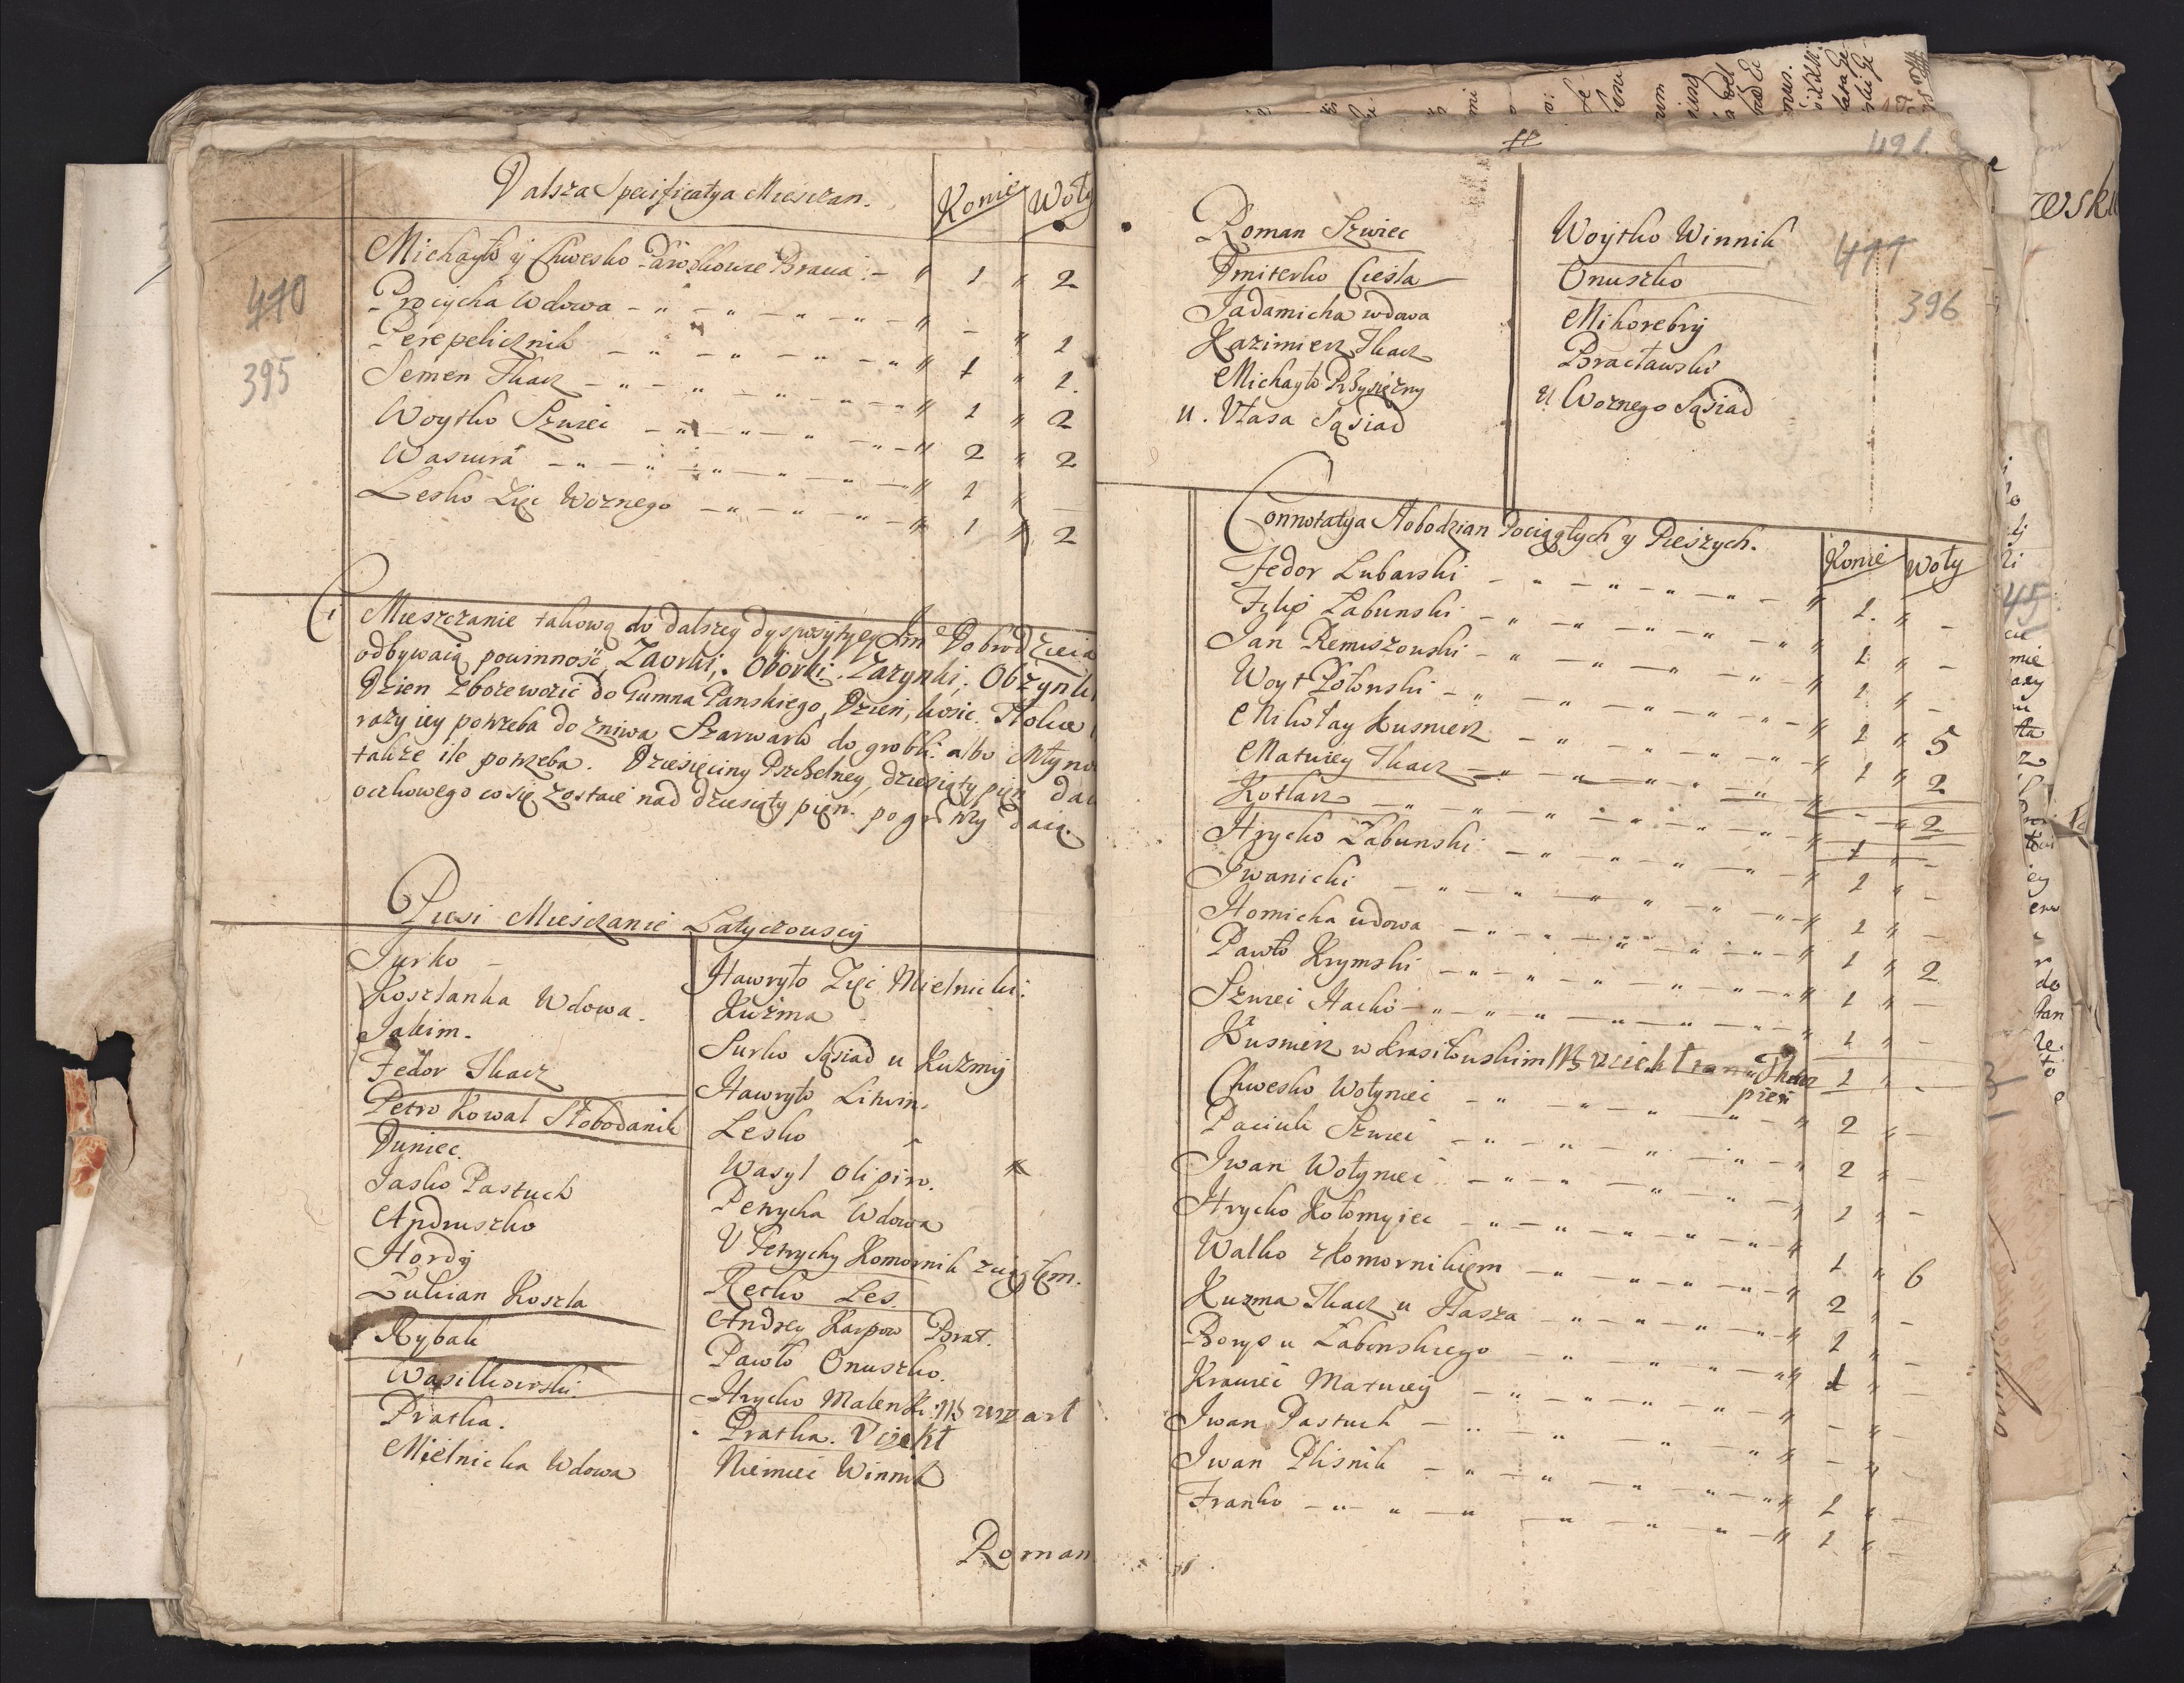 Dalsza Specificatya Miesczan. Konie Woły
410
395
Michayło y Chwesko Bracia 1 2
Procycha Wdowa - 1
Perepelicznik 1 1.
Semen Tkacz 1 2
Woytko Szwiec 2 2
Waswira 1 -
Lesko Zięć Woznego 1 2
Ci Mieszczanie takową do dalszey dyspozytyey Jm Dobrodzieia
odbywaią powinność, Zaorki, Oborki, Zazynki, Obżynki
Dzien zboze wozić do Gumna Panskiego, Dzień kosić. Tłoku
razy iey potrzeba do zniwa Szarwark do grobli albo Młyna
także ile potrzeba. Dziesięciny Pszczelney, dziesiąty pień
oczkowego co się zostaie nad dziesiąty pień. po gr daią.
Piesi Miesczanie Latyczowscy
Jurko -
Kosztanka Wdowa.
Jakim.
Fedor Tkacz
Petro Kowal Słobodanik
Duniec.
Jasko Pastuch
Andruszko
Hordy
Łukian Koszla
Rybak
Wasilkowski
Pratka.
Mielnicka Wdowa
Hawryło Zięć Mielnicki.
Kuźma
Jurko Sąsiad u Kuzmy
Hawryło Litwin.
Lesko
Wasyl Olipiw.
Petrycha Wdowa
U Petrychy Komornik z zięłem.
Recko Les.
Andrey Karpow Brat.
Pawło Onuszko.
Hrycko Malenki NB umart
Pratka. Uciekł
Niemiec Winnik
Roman
421.
411
396
Roman Szwiec
Dmiterko Cieśla
Jadamicha wdowa
Kazimierz Tkacz
Michayło Przysiężny
u. Własa Sąsiad
Woytko Winnik
Onuszko
Mikorebry
Bracławski
u Woznego Sąsiad
Connotatya Słobodzian Pociągłych y Pieszych. Konie Woły
Fedor Lubarski 1. -
Filip Łabunski 1 -
Jan Remiszowski 1 -
Woyt Połonski 1 5
Mikołay Kusnierz 1 2
Matwiey Tkacz - 2
Kotlarz 1 -
Hrycko Łabunski 1 -
Iwanicki 1 -
Homicha wdowa 1 2
Pawło Krymski 1 -
Szwiec Hacko 1 -
Kusnierz w Krasiłowskim NB uciekł 1 -
Chwesko Wołyniec 2 -
Paciuk Szwiec 2 -
Iwan Wołyniec 1 -
Hrycko Kołomyiec 1 6
Walko z Komornikiem 2 -
Kuzma Tkacz u Stasza 1 -
Borys u Łabonskiego 1 -
Krawiec Matwiey - -
Iwan Pastuch - -
Iwan Plisnik 1 -
Franko 1 -